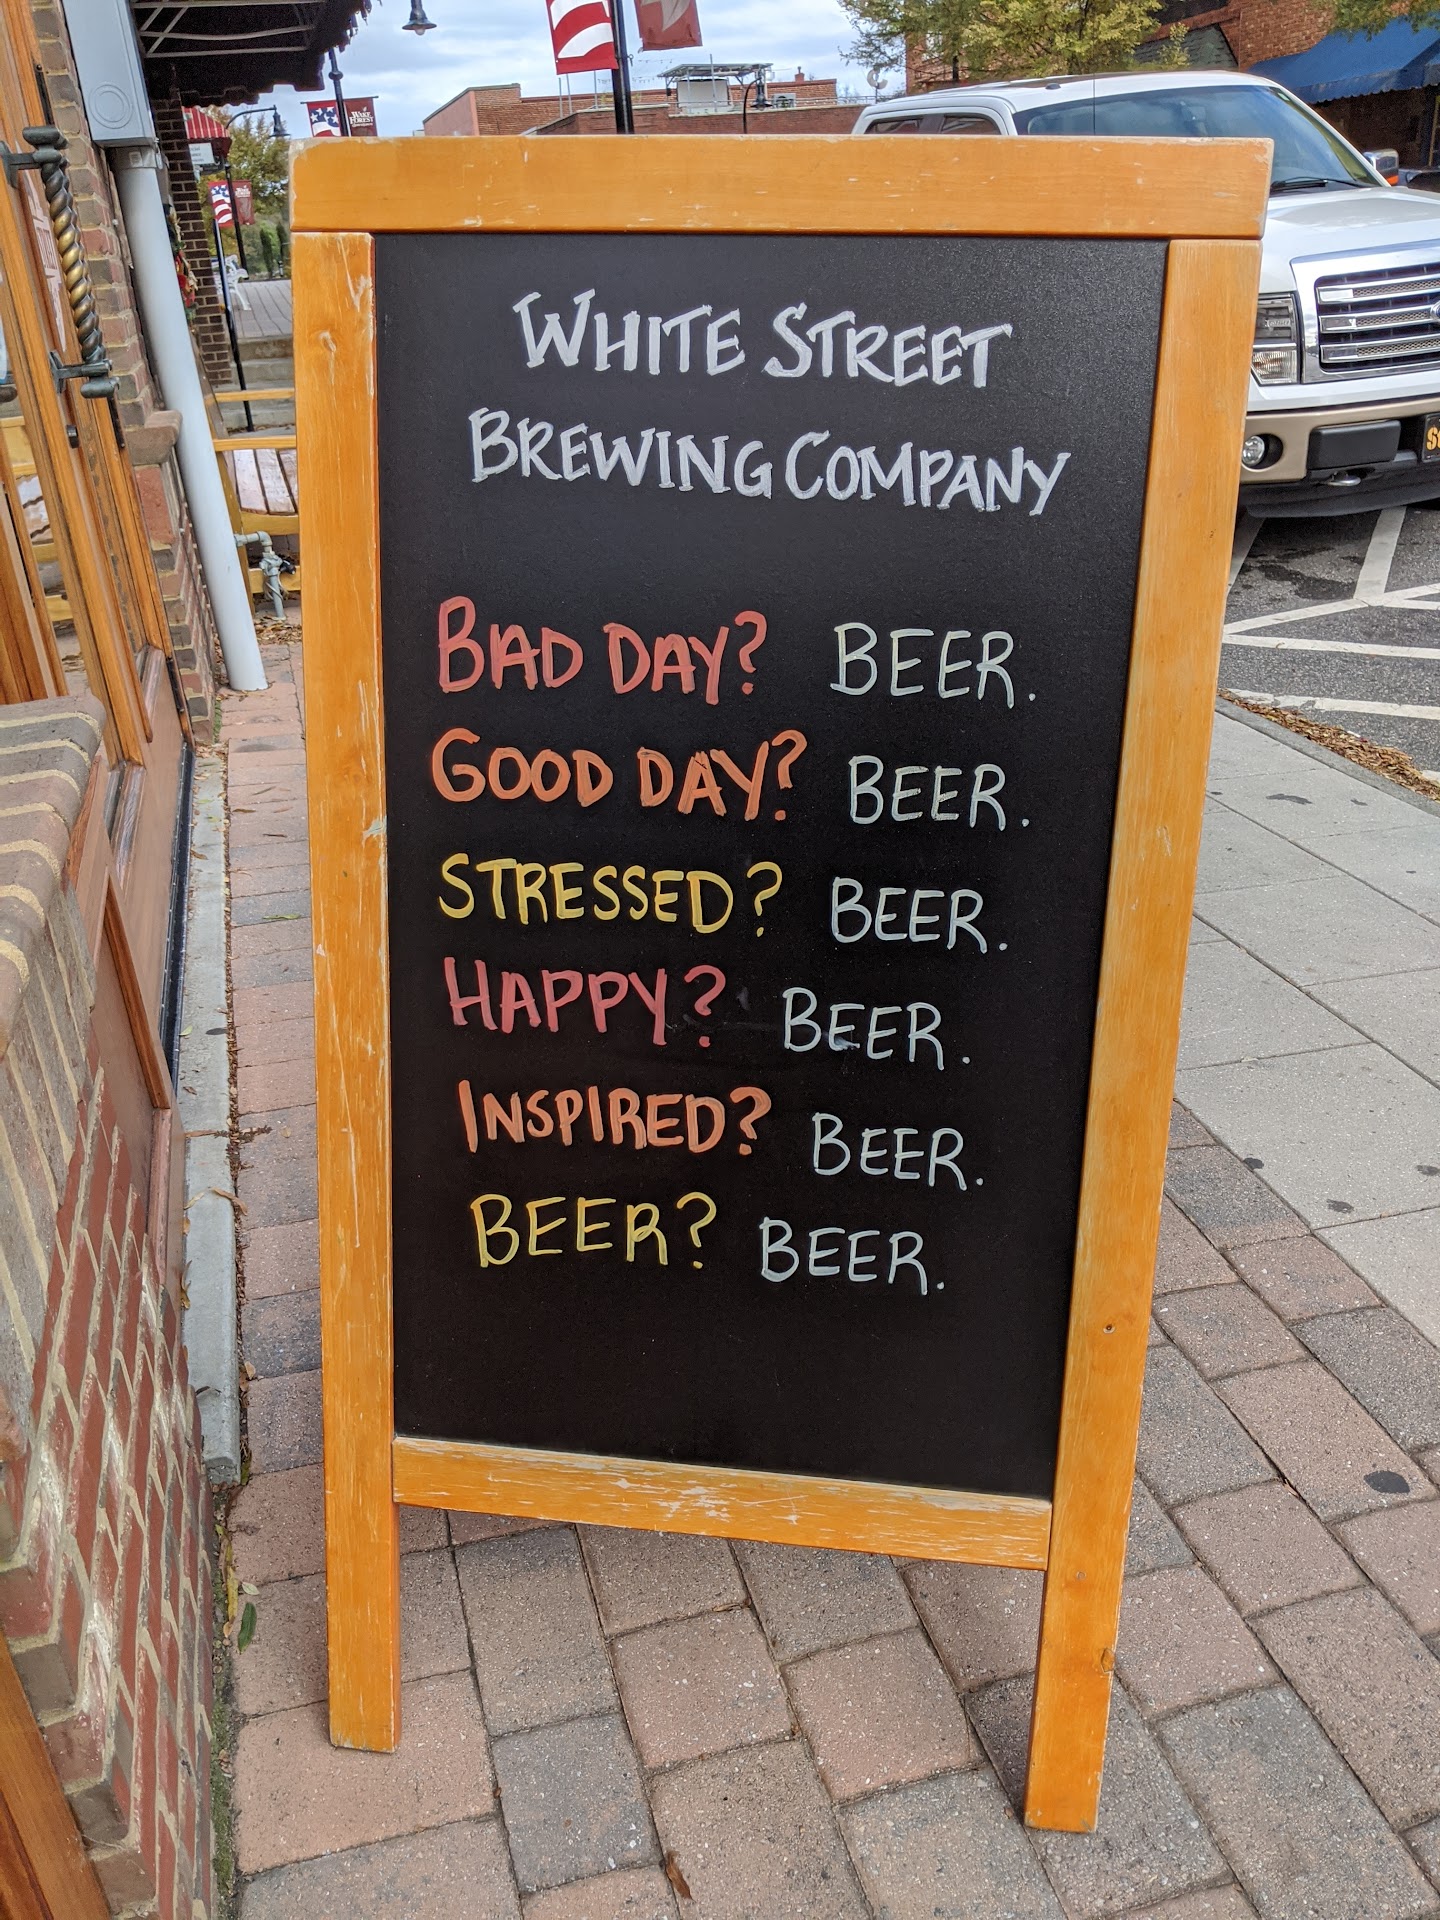 WAKE FOREST
WHITE STREET
BREWING COMPANY
BAD DAY? BEER.
GOOD DAY? BEER.
STRESSED? BEER.
HAPPY? BEER.
INSPIRED? BEER.
BEER? BEER.